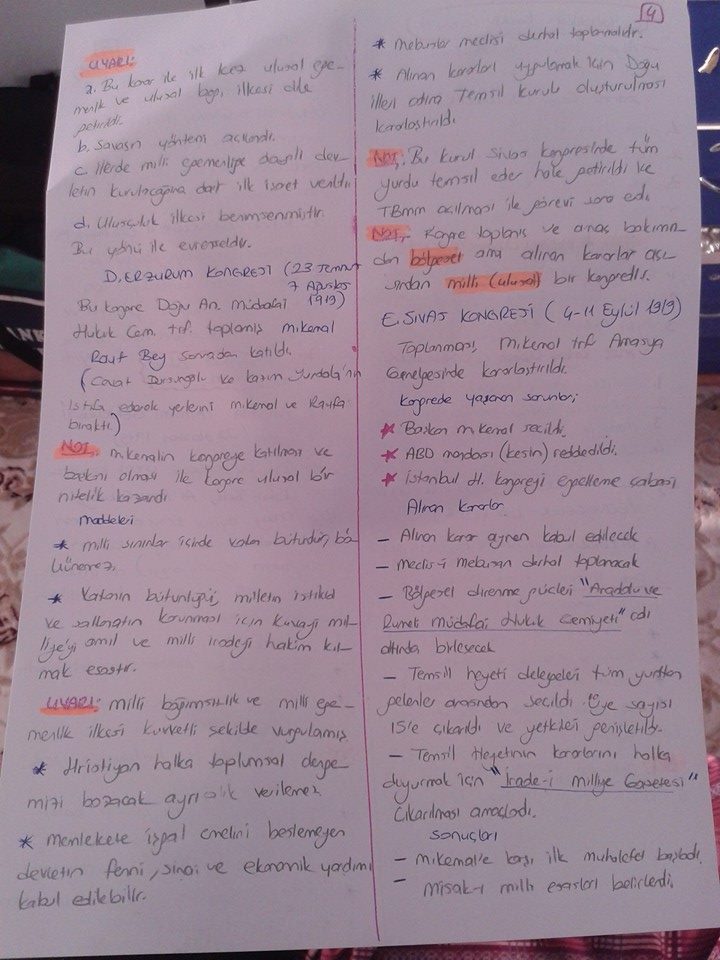 4
UYARI:
a. Bu karar ile ilk kez ulusal ege-
menlik ve ulusal bağı ilkesi dile
getirildi.
b. Savaşın yöntemi açıklandı.
c. İlerde milli egemenliğe dayalı dev-
letin kurulacağına dair ilk işaret verildi
d. Ulusçuluk ilkesi benimsenmiştir.
Bu yönü ile evrenseldir.
D. ERZURUM KONGRESİ (23 Temmuz
7 Ağustos
1919)
Bu kongre Doğu An. Müdafai
Hukuk Cem. trf. toplamış mikemal
Rauf Bey sonradan katıldı.
(Cevat Dursunoğlu ve kazım Yurdala'nın
istifa ederek yerlerini mikemal ve Raufa
bıraktı)
NOT: mikemalin kongreye katılması ve
başkanı olması ile kongre ulusal bir
nitelik kazandı
maddeleri
* milli sınırlar içinde vatan bütündür, bö-
lünemez.
* Vatanın bütünlüğü, milletin istiklal
ve saltanatın korunması için kuvayi mil-
liye'yi amil ve milli iradeyi hakim kıl-
mak esastır.
UYARI: milli bağımsızlık ve milli ege-
menlik ilkesi kuvvetli şekilde vurgulamış
* Hristiyan halka toplumsal denge-
mizi bozacak ayrıcalık verilemez
* memlekete işgal emelini beslemeyen
devletin fenni, sinai ve ekonomik yardımı
kabul edilebilir.
* mebuslar meclisi derhal toplanmalıdır.
* Alınan kararları uygulamak için Doğu
illeri adına Temsil kurulu oluşturulması
kararlaştırıldı.
NOT: Bu kurul Sivas kongresinde tüm
yurdu temsil eder hale getirildi ve
TBmm açılması ile görevi sona erdi.
NOT: Kongre toplanış ve amaç bakımın-
dan bölgesel ama alınan kararlar açı-
sından milli (ulusal) bir kongredir.
E. SİVAS KONGRESİ (4-11 Eylül 1919)
Toplanması, mikemal trf Amasya
Genelgesinde kararlaştırıldı.
Kongrede yaşanan sorunlar;
* Başkan mikemal seçildi.
* ABD mandası (kesin) reddedildi.
* İstanbul H. kongreyi engelleme çabası
Alınan kararlar
- Alınan karar aynen kabul edilecek
- Meclis-i mebusan derhal toplanacak
- Bölgesel direnme güçleri "Anadolu ve
Rumeli Müdafai Hukuk Cemiyeti" adı
altında birleşecek
- Temsil heyeti delegeleri tüm yurttan
gelenler arasından seçildi. Üye sayısı
15'e çıkarıldı ve yetkileri genişletildi.
- Temsil Heyetinin kararlarını halka
duyurmak için "İrade-i Milliye Gazetesi"
çıkarılması amaçladı.
sonuçları
- mikemal'e karşı ilk muhalefet başladı.
- misak-ı milli esasları belirlendi.